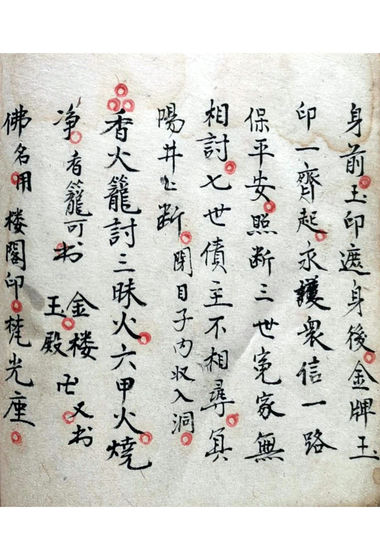 身前玉印遮身後金牌玉
印一齊起永護衆信一路
保平安照斷三世冤家無
相討七世債主不相尋員
陽井上斷閉目子內収入洞
香火籠討三昧火六甲火燒
净者籠可书金楼玉殿卍又书
佛名用楼閣印梵光座